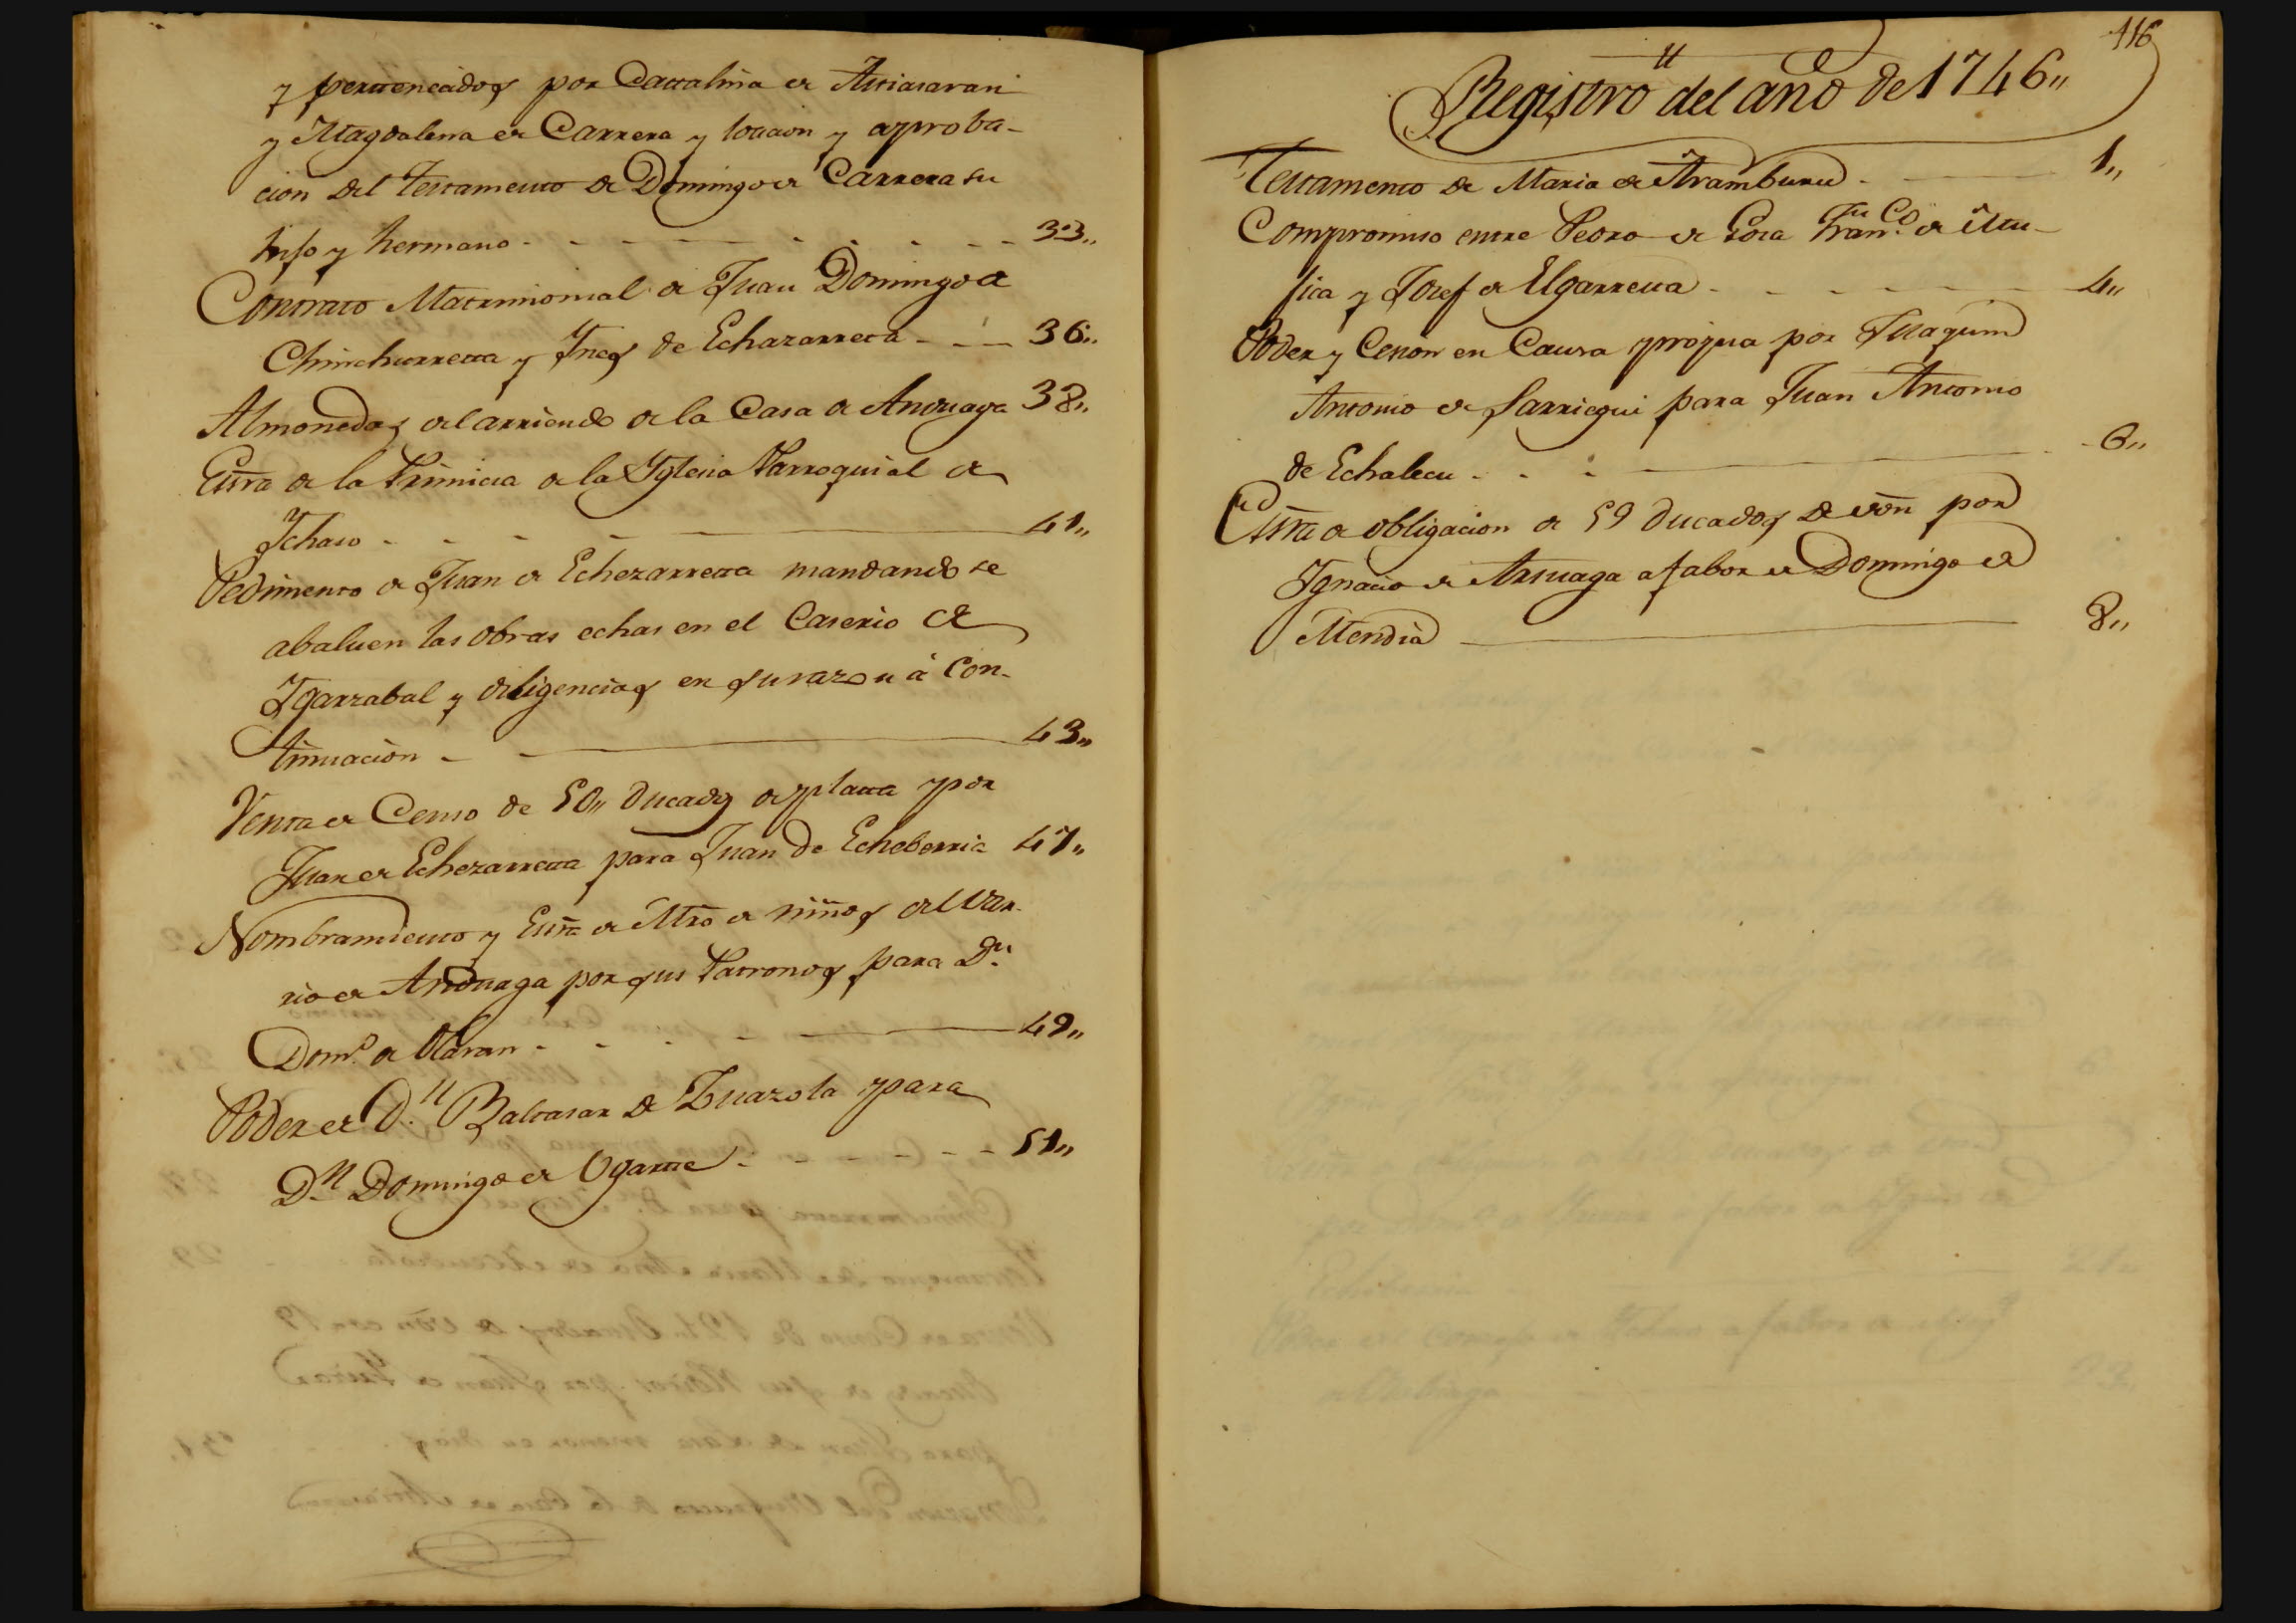 y pertenecidos por Cattalina de Arriasaran
y Magdalena de Carrera y loacion y aproba-
cion del testamento de Domingo de Carrera su
hijo y hermano - - - - 33,,
Contrato Matrimonial de Juan Domingo de
Chinchurretta y Ines de Echazarreta - - - 36,,
Almonedas del arriendo de la Casa de Anduaga 38,,
Essra de la Primicia de la Yglesia Parroquial de
Ychaso - - - - 41,,
Pedimento de Juan de Echezarretta mandando se
abaluen las obras echas en el Caserio de
Ygarzabal y diligencias en su razon à con-
tinuaciòn - - 43,,
Venta de Censo de 50,, ducados de platta por
Juan de Echezarretta para Juan de Echeberria 47,,
Nombramiento y Essra de Mro de niños del
rio de Anduaga por sus Patronos para Dn.
Domo. de Olaran - - - - 49,,
Poder de Dn. Baltasar de Zuazola para
Dn Domingo de Ugartte - - - - 51,,
116
Registro del año de 1746,,
Testamento de Maria de Aramburu - 1,,
Compromiso entre Pedro de Franco. de
y Josef de Elgarretta - - - - 4,,
Poder y Cesion en Causa propia por Juaquin
Antonio de Sarriegui para Juan Antonio
de Echalecu - - - 6,,
Essra de obligacion de 59 ducados de von por
Ygnacio de Arsuaga a fabor de Domingo de
Mendia 8,,